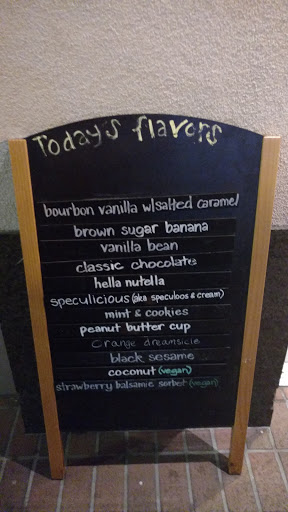 Today's flavors
bourbon vanilla w/salted caramel
brown sugar banana
vanilla bean
classic chocolate
hella nutella
speculicious (aka speculoos & cream)
mint & cookies
peanut butter cup
orange dreamsicle
black sesame
coconut (vegan)
strawberry balsamic sorbet (vegan)